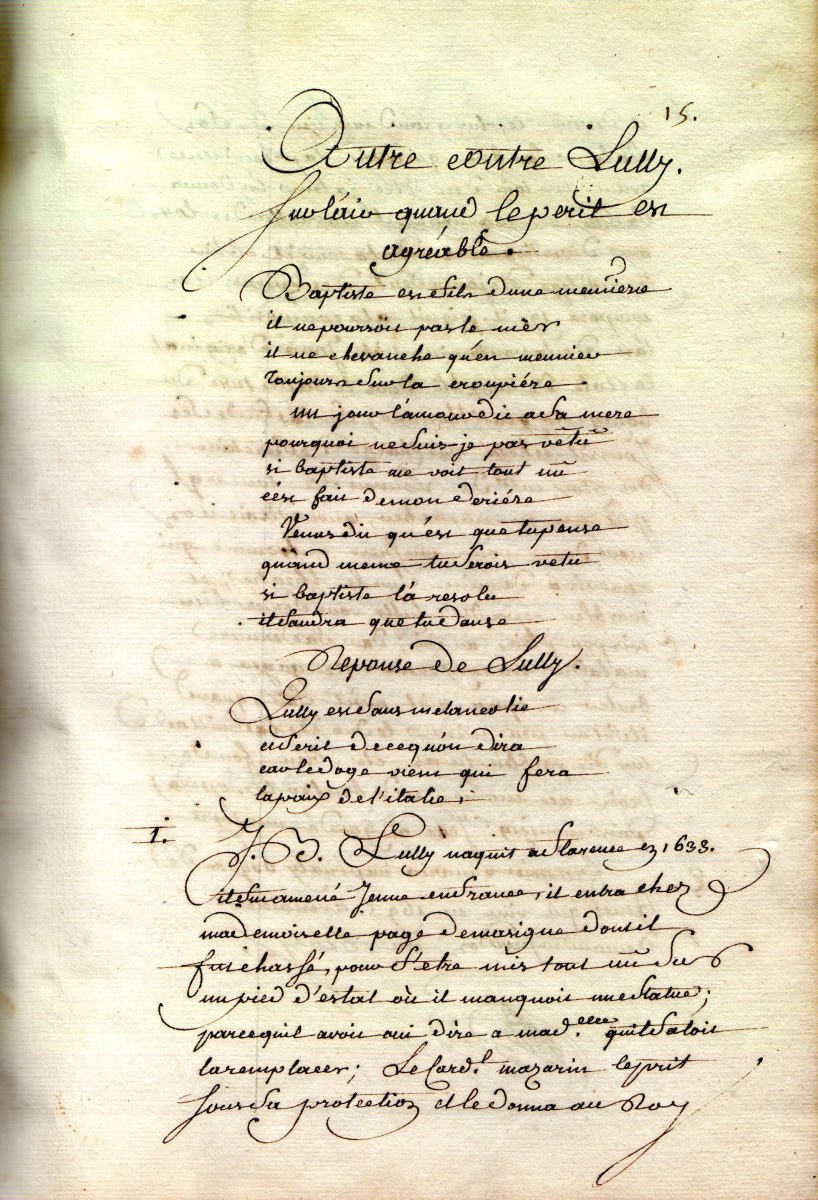 15.
Autre contre Lully.
sur l'air quand le peril est
agréable.
Baptiste est fils d'une meuniere
il ne pouroit pas le nier
il ne chevauche qu'en meunier
Toujours sur la croupiére
un jour l'amour dit a sa mere
pourquoi ne suis-je pas vêtu
si baptiste me voit tout nu
c'ést fait de mon deriére
Venus dit qu'est que tu pense
quand meme tu serois vetu
si baptiste l'a resolu
il faudra que tu danse
Reponse de Lully.
Lully est sans melancolie
et se rit de ce qu'on dira
car le doge vient qui fera
la paix de l'italie;
1. J. B. Lully naquit a florence en 1633.
il fut amené Jeune en france, il entra chez
mademoiselle page de
fut chassé, pour s'etre mis tout nu sur
un pied d'estal où il manquoit une statue;
parcequ'il avoit oui dire a mad.elle qu'il faloit
la remplacer; Le Card.l mazarin le prit
sous sa protection et le donna au Roy